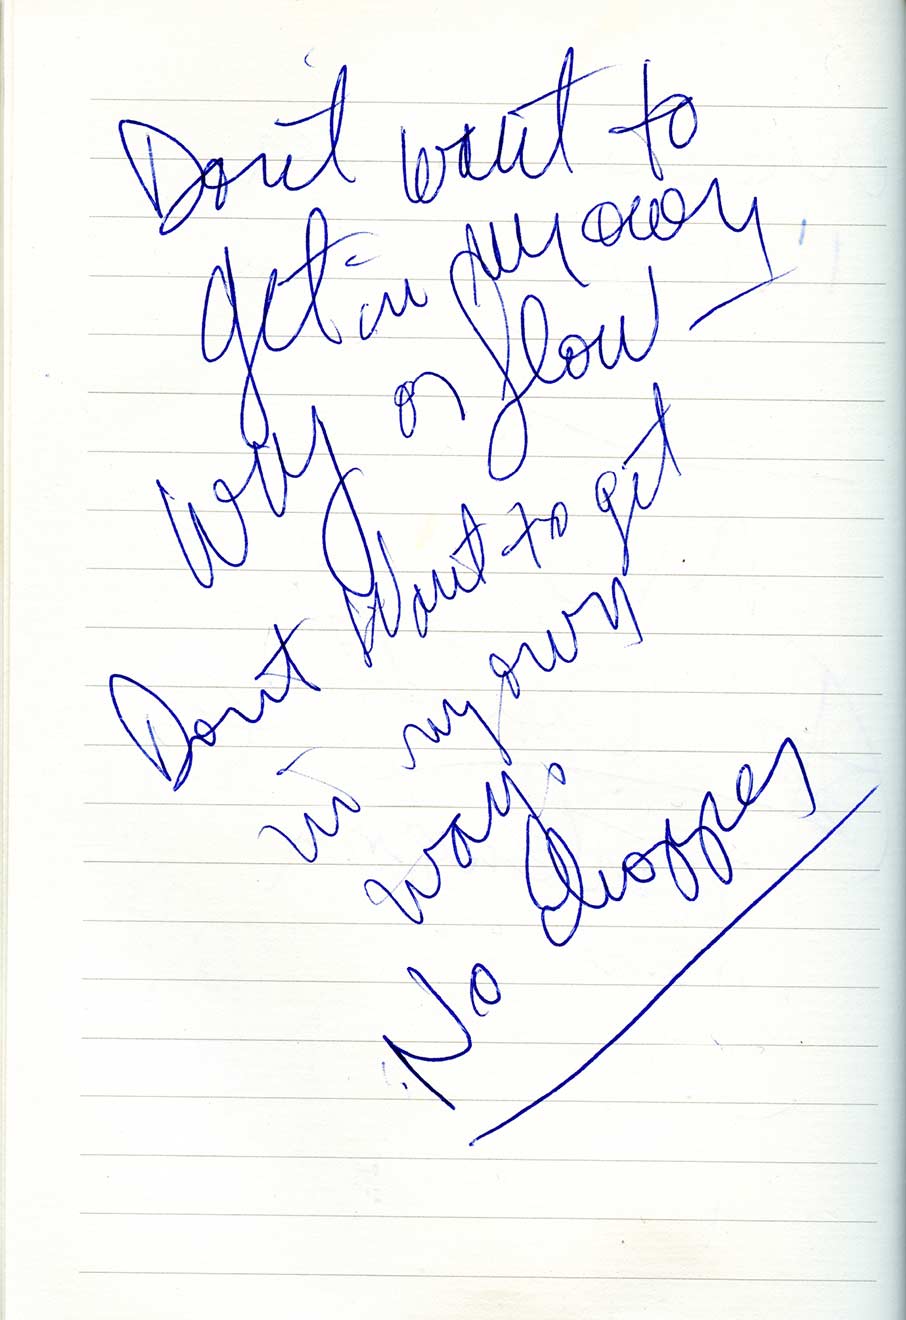 Don't want to
get in my own
way or flow
Don't want to get
in my own
way.
No